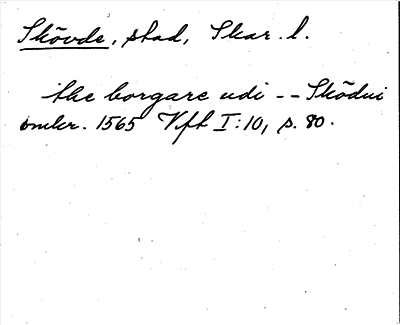 Skövde, stad, Skar. l.
the borgare udi -- Sködui
omkr. 1565 Vft I:10, s. 80.